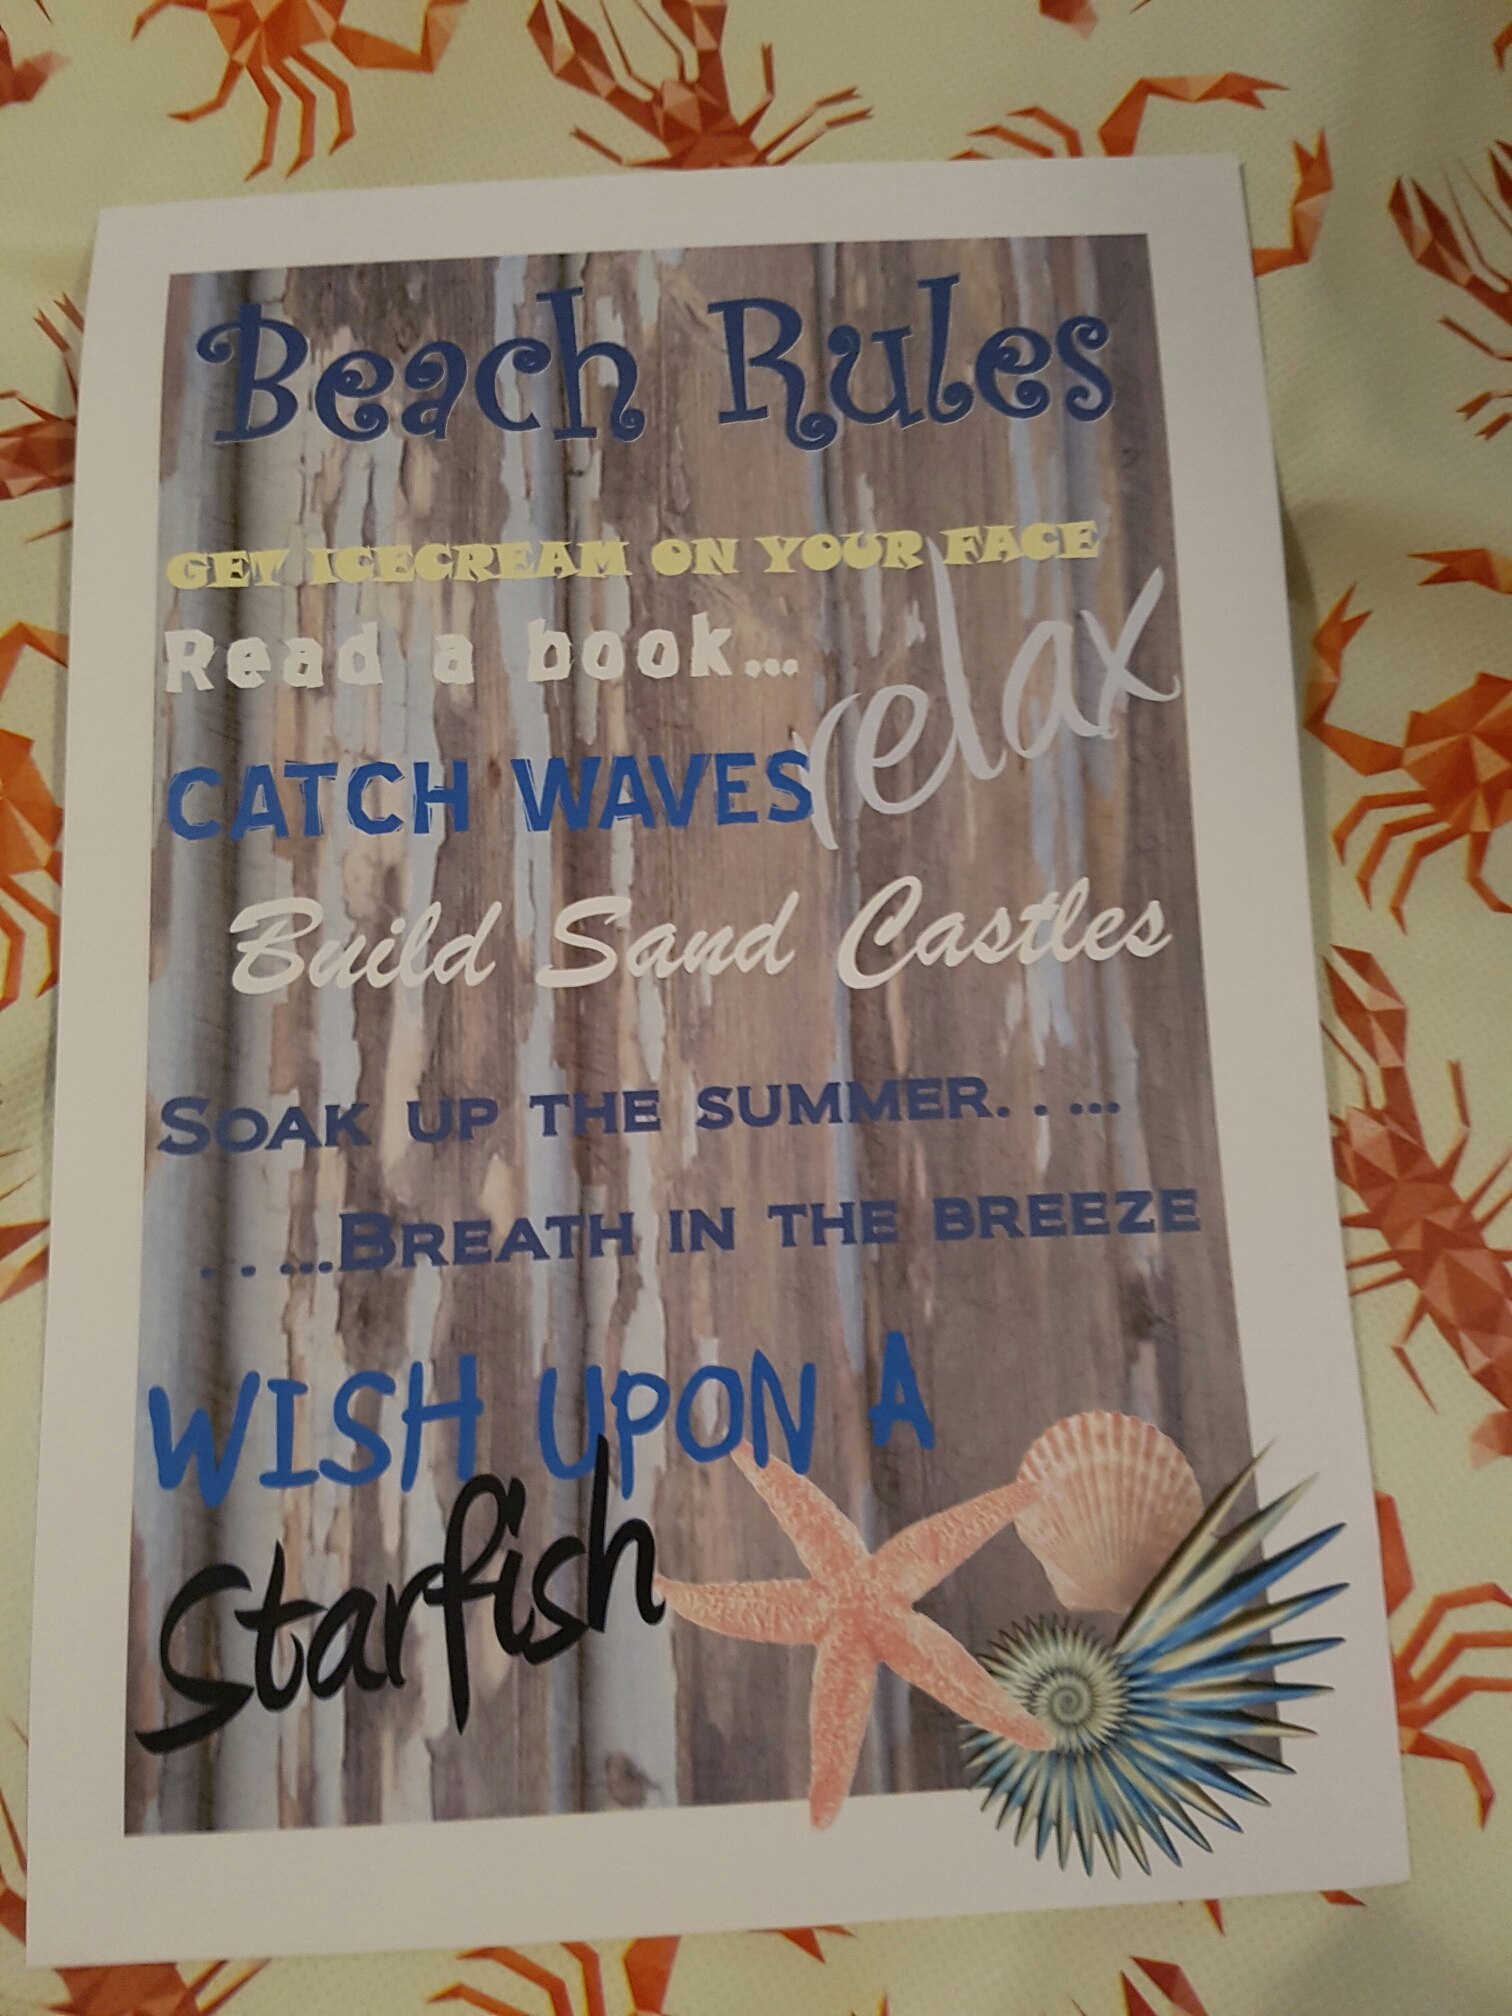 Beach Rules
GET ICECREAM ON YOUR FACE
Read a book...
relax
CATCH WAVES
Build Sand Castles
SOAK UP THE SUMMER. . ...
. . ...BREATH IN THE BREEZE
WISH UPON A
Starfish